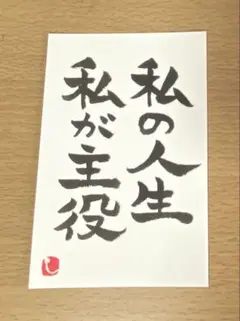 私の人生
私が主役